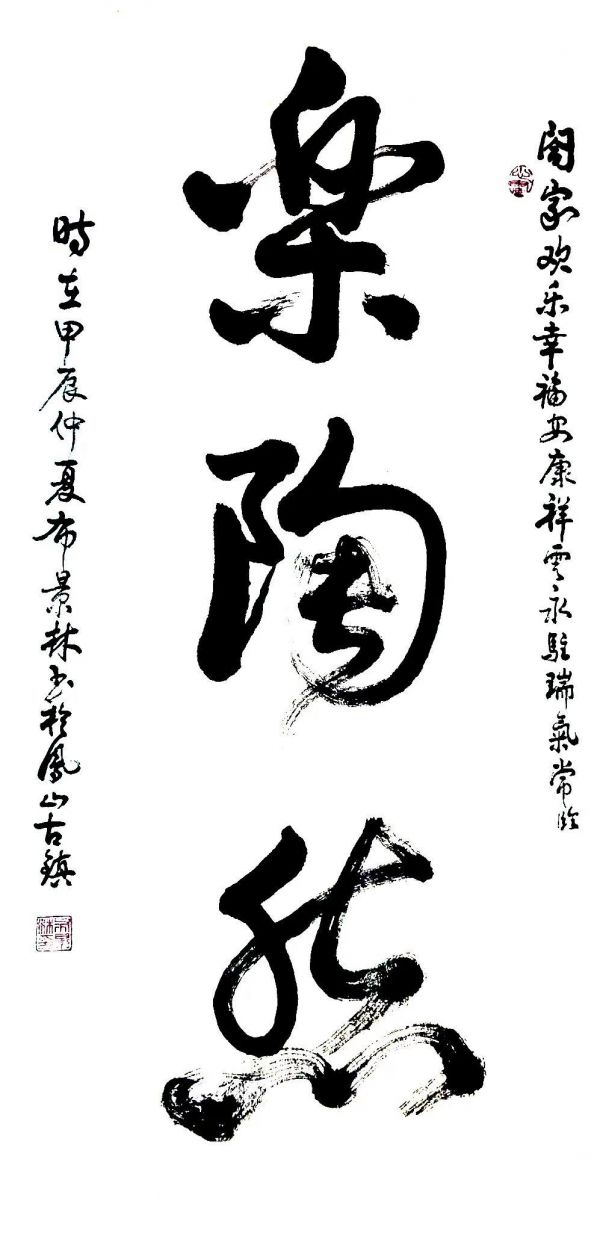 阖家欢乐幸福安康祥云永驻瑞氣常临
楽陶然
時在甲辰仲夏布景林书於鳳山古鎮